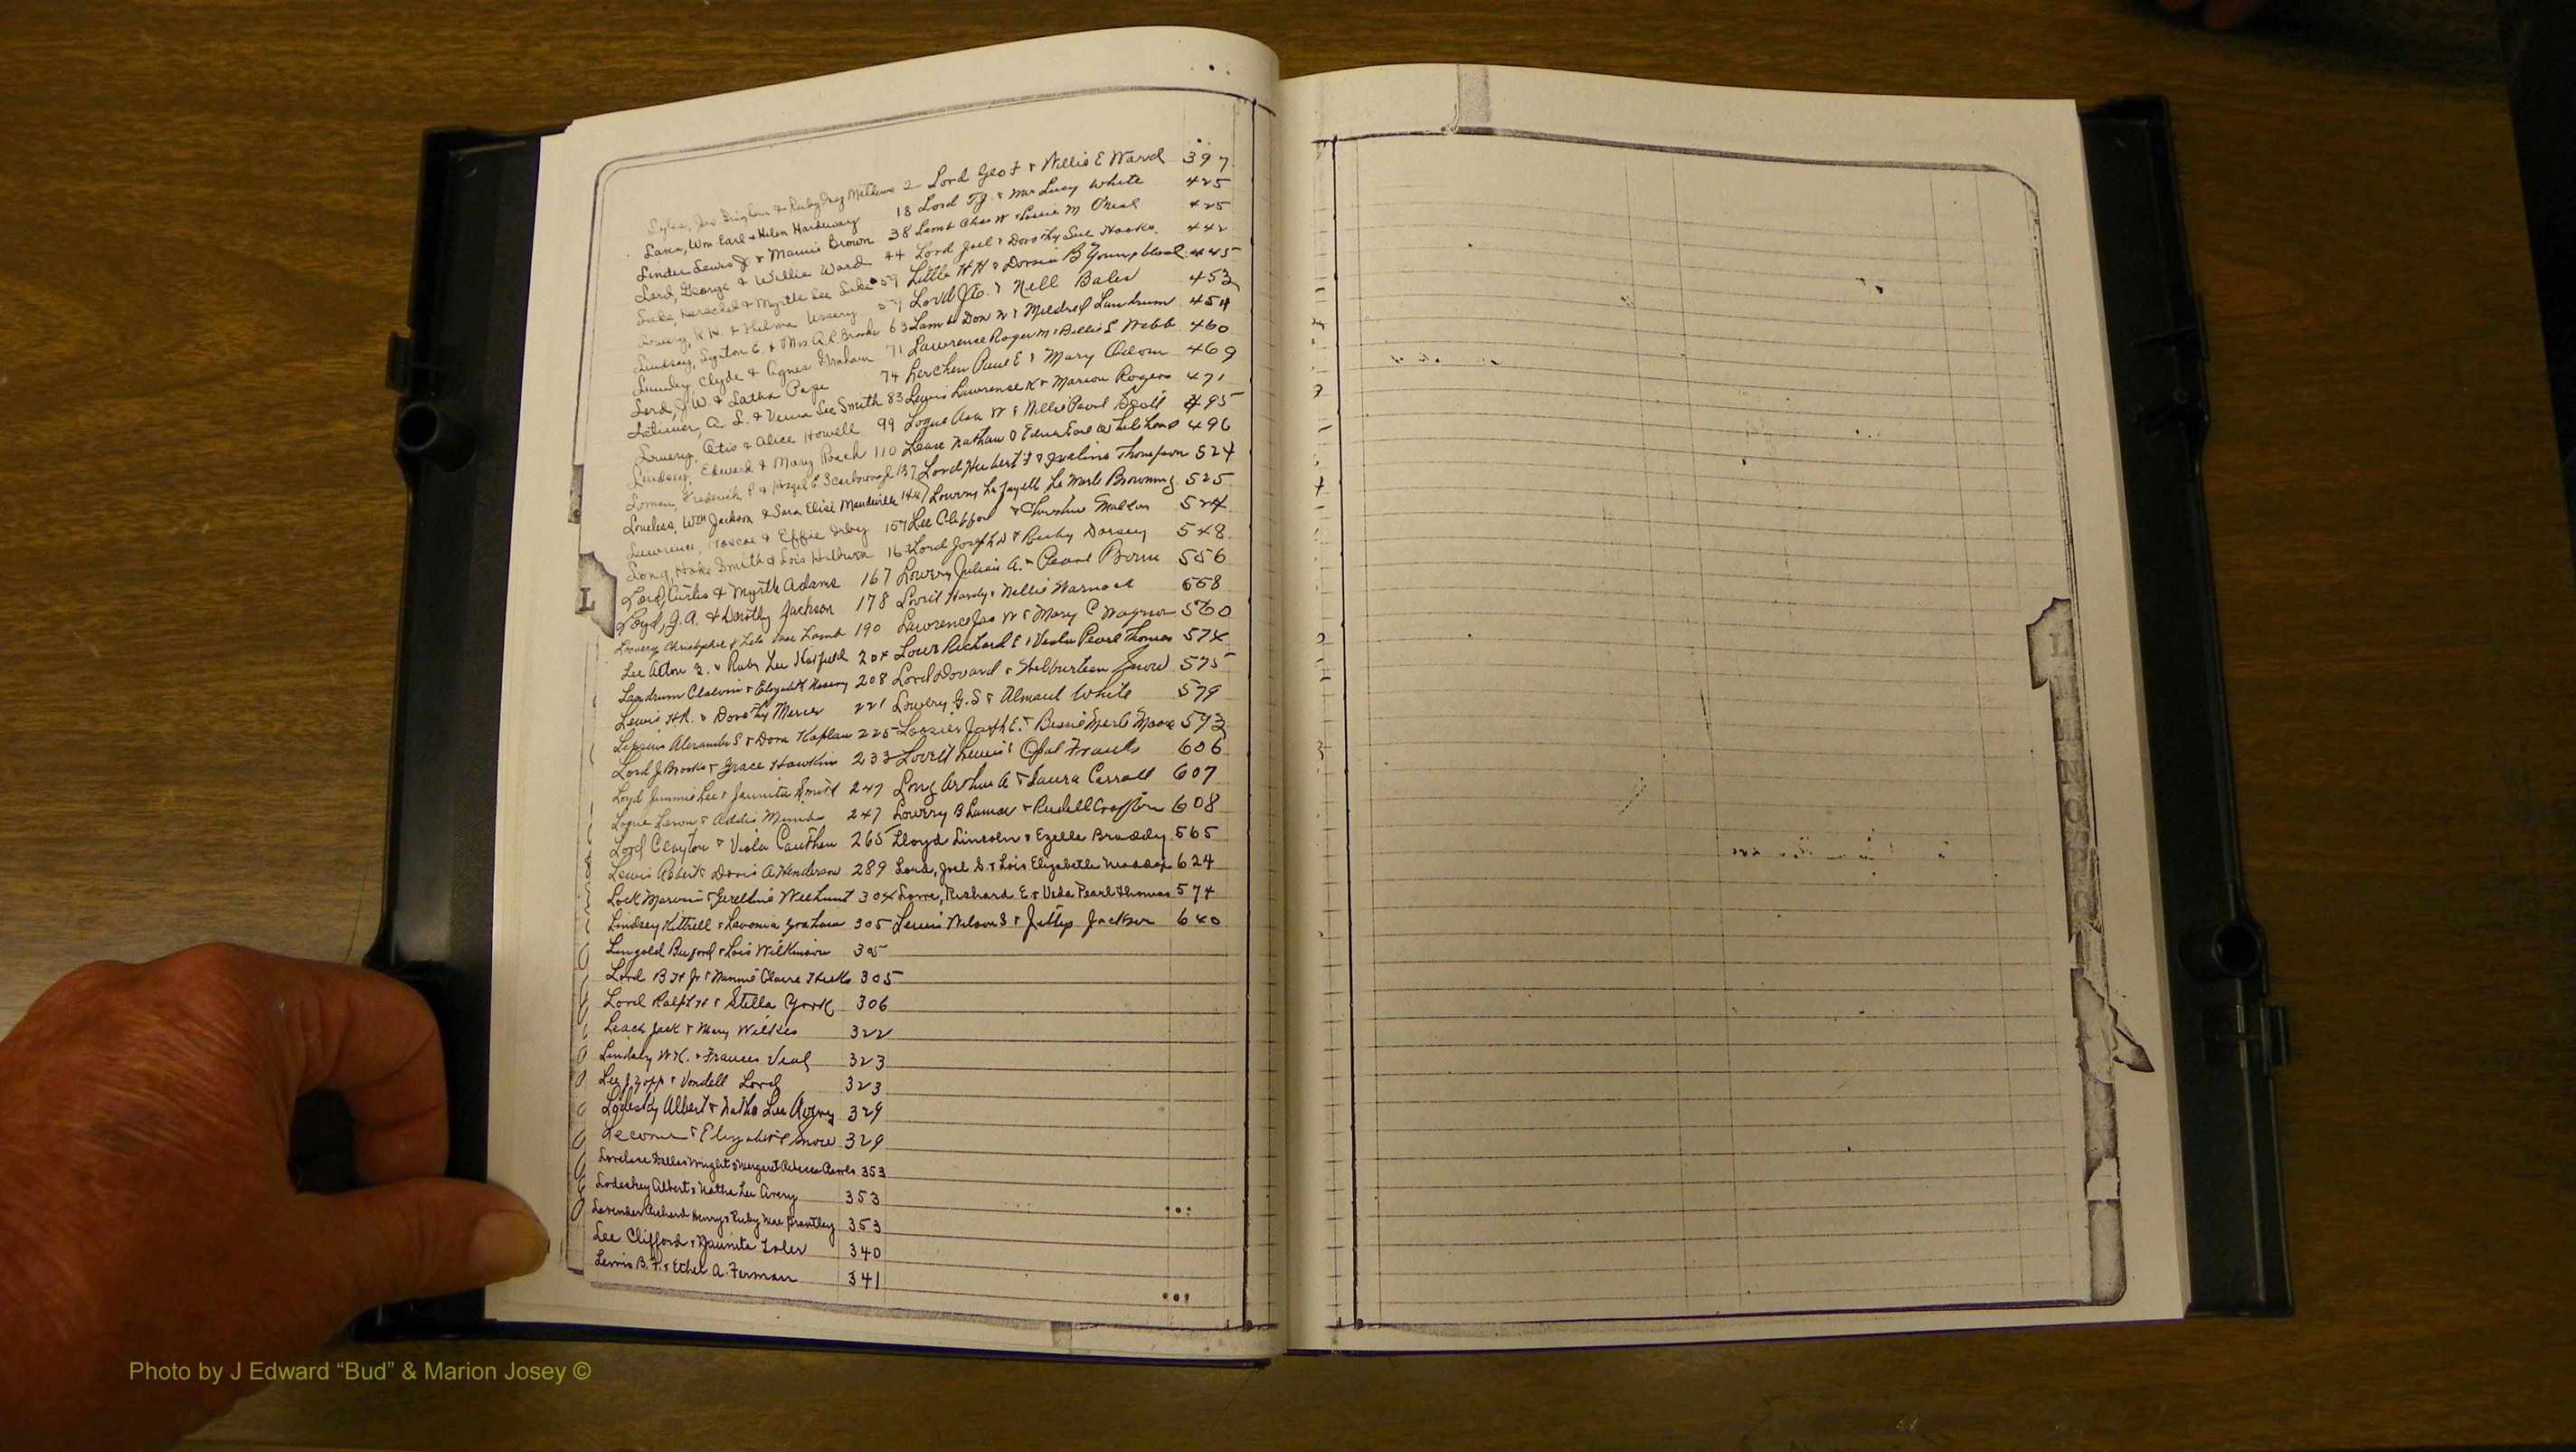 Lane, Wm Earl & Helen Hardeway 18
Linder Lewis J & Mamie Brown 38
Lord, George & Willie Ward 44
Luke, Herschel & Myrtle Lee Luke 59
Lowery, R.H. & Thelma Ussery 59
Lindsey, Lynton E. & Mrs A.R. Brooks 63
Lumley, Clyde & Agnes Graham 71
Lord, J.W. & Latha Page 74
Latimer, A. L. & Verna Lee Smith 83
Lowery, Otis & Alice Howell 99
Lindsey, Edward & Mary Roach 110
Frederick P & Hazel E Scarborough 137
Loveless, Wm Jackson & Sara Elise Mandeville 144
Lawrence, Roscoe & Effie Irby 157
Long, Hoke Smith & Lois Hilburn 163
Lord, Curtis & Myrtle Adams 167
Loyd, J.A. & Dorothy Jackson 178
Christopher & Lamb 190
Lee Alton & Ruby Lee 204
Landrum & Elizabeth 208
Lewis H.R. & Dorothy Mercer 221
Alexander S & Dora Kaplan 225
Lord J Brooks & Grace Hawkins 233
Loyd Jimmie Lee & Smith 247
Logue Leron & Addie Mimbs 247
Lord Clayton & Viola Cauthen 265
Lewis & Doris A. Henderson 289
Lock Marvin & 304
Lindsey Kittrell & Lavonia Graham 305
Buford & Lois Wilkinson 305
Lord B H Jr & Nannie Claire Hicks 305
Lord Ralph H & Stella York 306
Leach Jack & Mary Wilkes 322
Lindsey W H. & Frances Veal 323
Lee J & Vondell Lord 323
Albert & Natha Lee Avery 329
& Elizabeth Snow 329
Lovelace Dallas Wright & Margaret Rebecca 353
Lodeskey Albert & Natha Lee Avery 353
Lavender Richard Henry & Ruby Mae Brantley 353
Lee Clifford & Jaunita Toler 340
Lewis B.F. & Ethel A. Forman 341
Lord Geo F & Willie E Ward 397
Lord T.J. & Mrs Lucy White 425
Lamb Chas W & M O'Neal 425
Lord Joel & Dorothy Sue Hooks 442
Little H H & B Youngblood 445
Lord J & Nell Bales 453
Lamb Don W & Mildred Landrum 454
Lawrence Roger M & Billie S Webb 460
Lerchen Paul E & Mary Odom 469
Lewis Lawrence K & Marion Rogers 471
Logue Asa W & Nellie Pearl 495
Lease Nathan O Edna Earl 496
Lord Hubert F & Thompson 524
Lowery La Fayett La Merle Browning 525
Lee Clifford & 524
Lord Joseph D & Ruby Dorsey 548
Lowery Julian A. & Pearl 556
Lovit Hardy & Nellie Warnock 558
Lawrence Jas W & Mary C Wagnon 560
Lowe Richard E & Veda Pearl Thomas 574
Lord Dovard & Snow 575
Lowery G.S & Almaul White 579
Joseph E. & Bessie Merle Moore 593
Lovett Lewis & Opal Franks 606
Long Arthur A & Laura Carroll 607
Lowery B Lamar & Crafton 608
Lloyd Lincoln & Ezelle Braddy 565
Lord, Joel S. & Lois Elizabeth Maddox 624
Lowe, Richard E & Veda Pearl Thomas 574
Lewis Nelson S & Jackson 640
L
L
Photo by J Edward “Bud” & Marion Josey ©